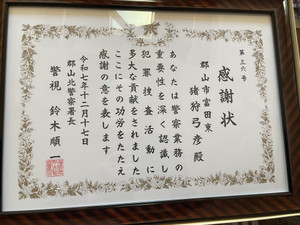 第三六号
感謝状
郡山市富田東
猪狩弓彦殿
あなたは警察業務の
重要性を深く認識し
犯罪捜査活動に
多大な貢献をされました
ここにその功労をたたえ
感謝の意を表します
令和七年十二月十七日
郡山北警察署長
警視 鈴木順一